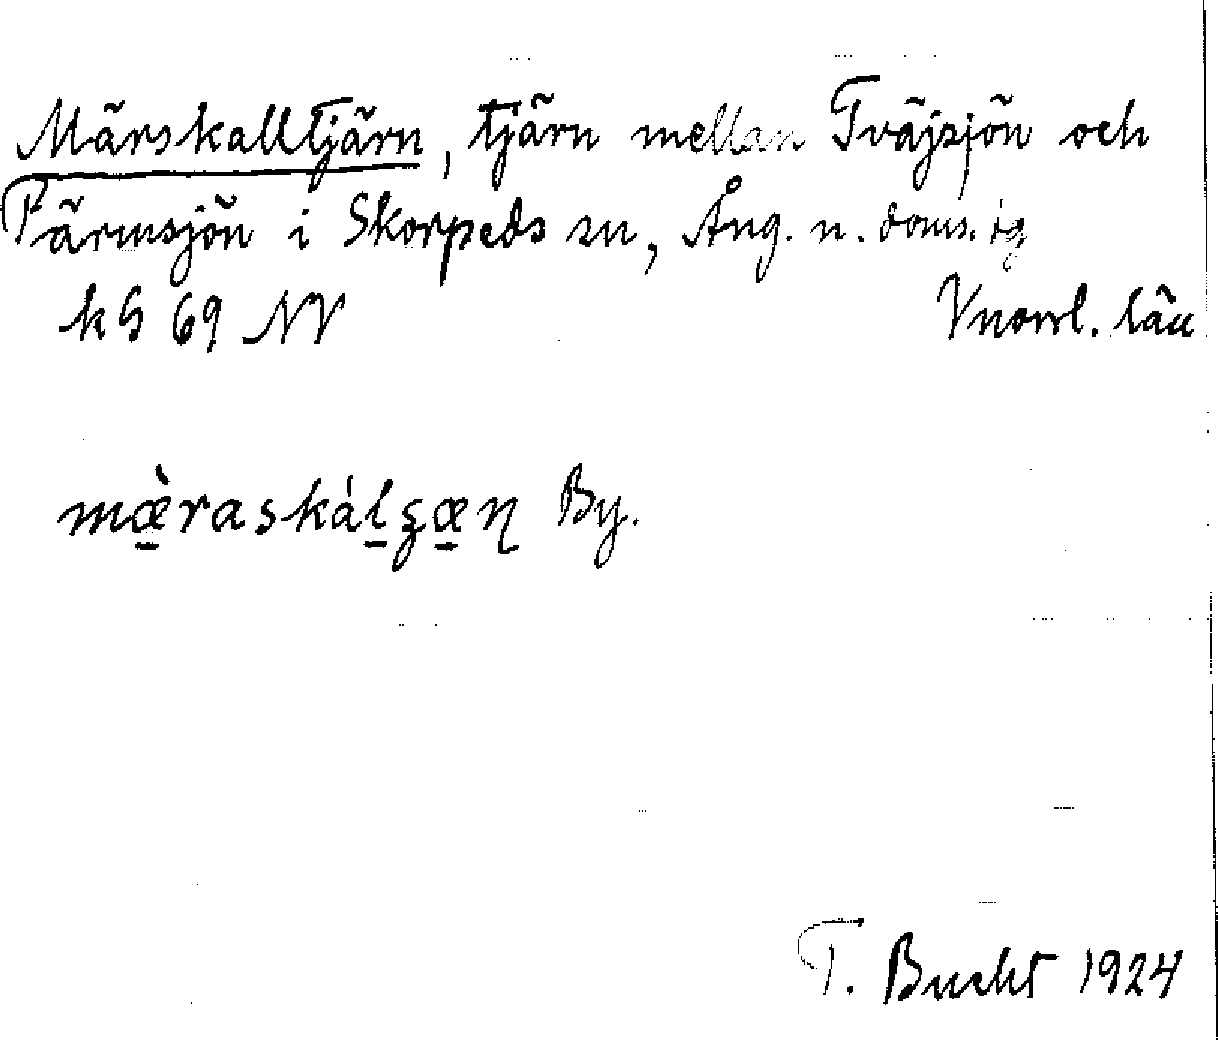 Märskalltjärn, tjärn mellan Tväjsjön och
Färmsjön i Skorpeds sn, Ång. n. doms. jg
kS 69 NV Vnorrl. län
mæ̠̀raskál̠ʂæ̠ɳ By.
T. Bucht 1924